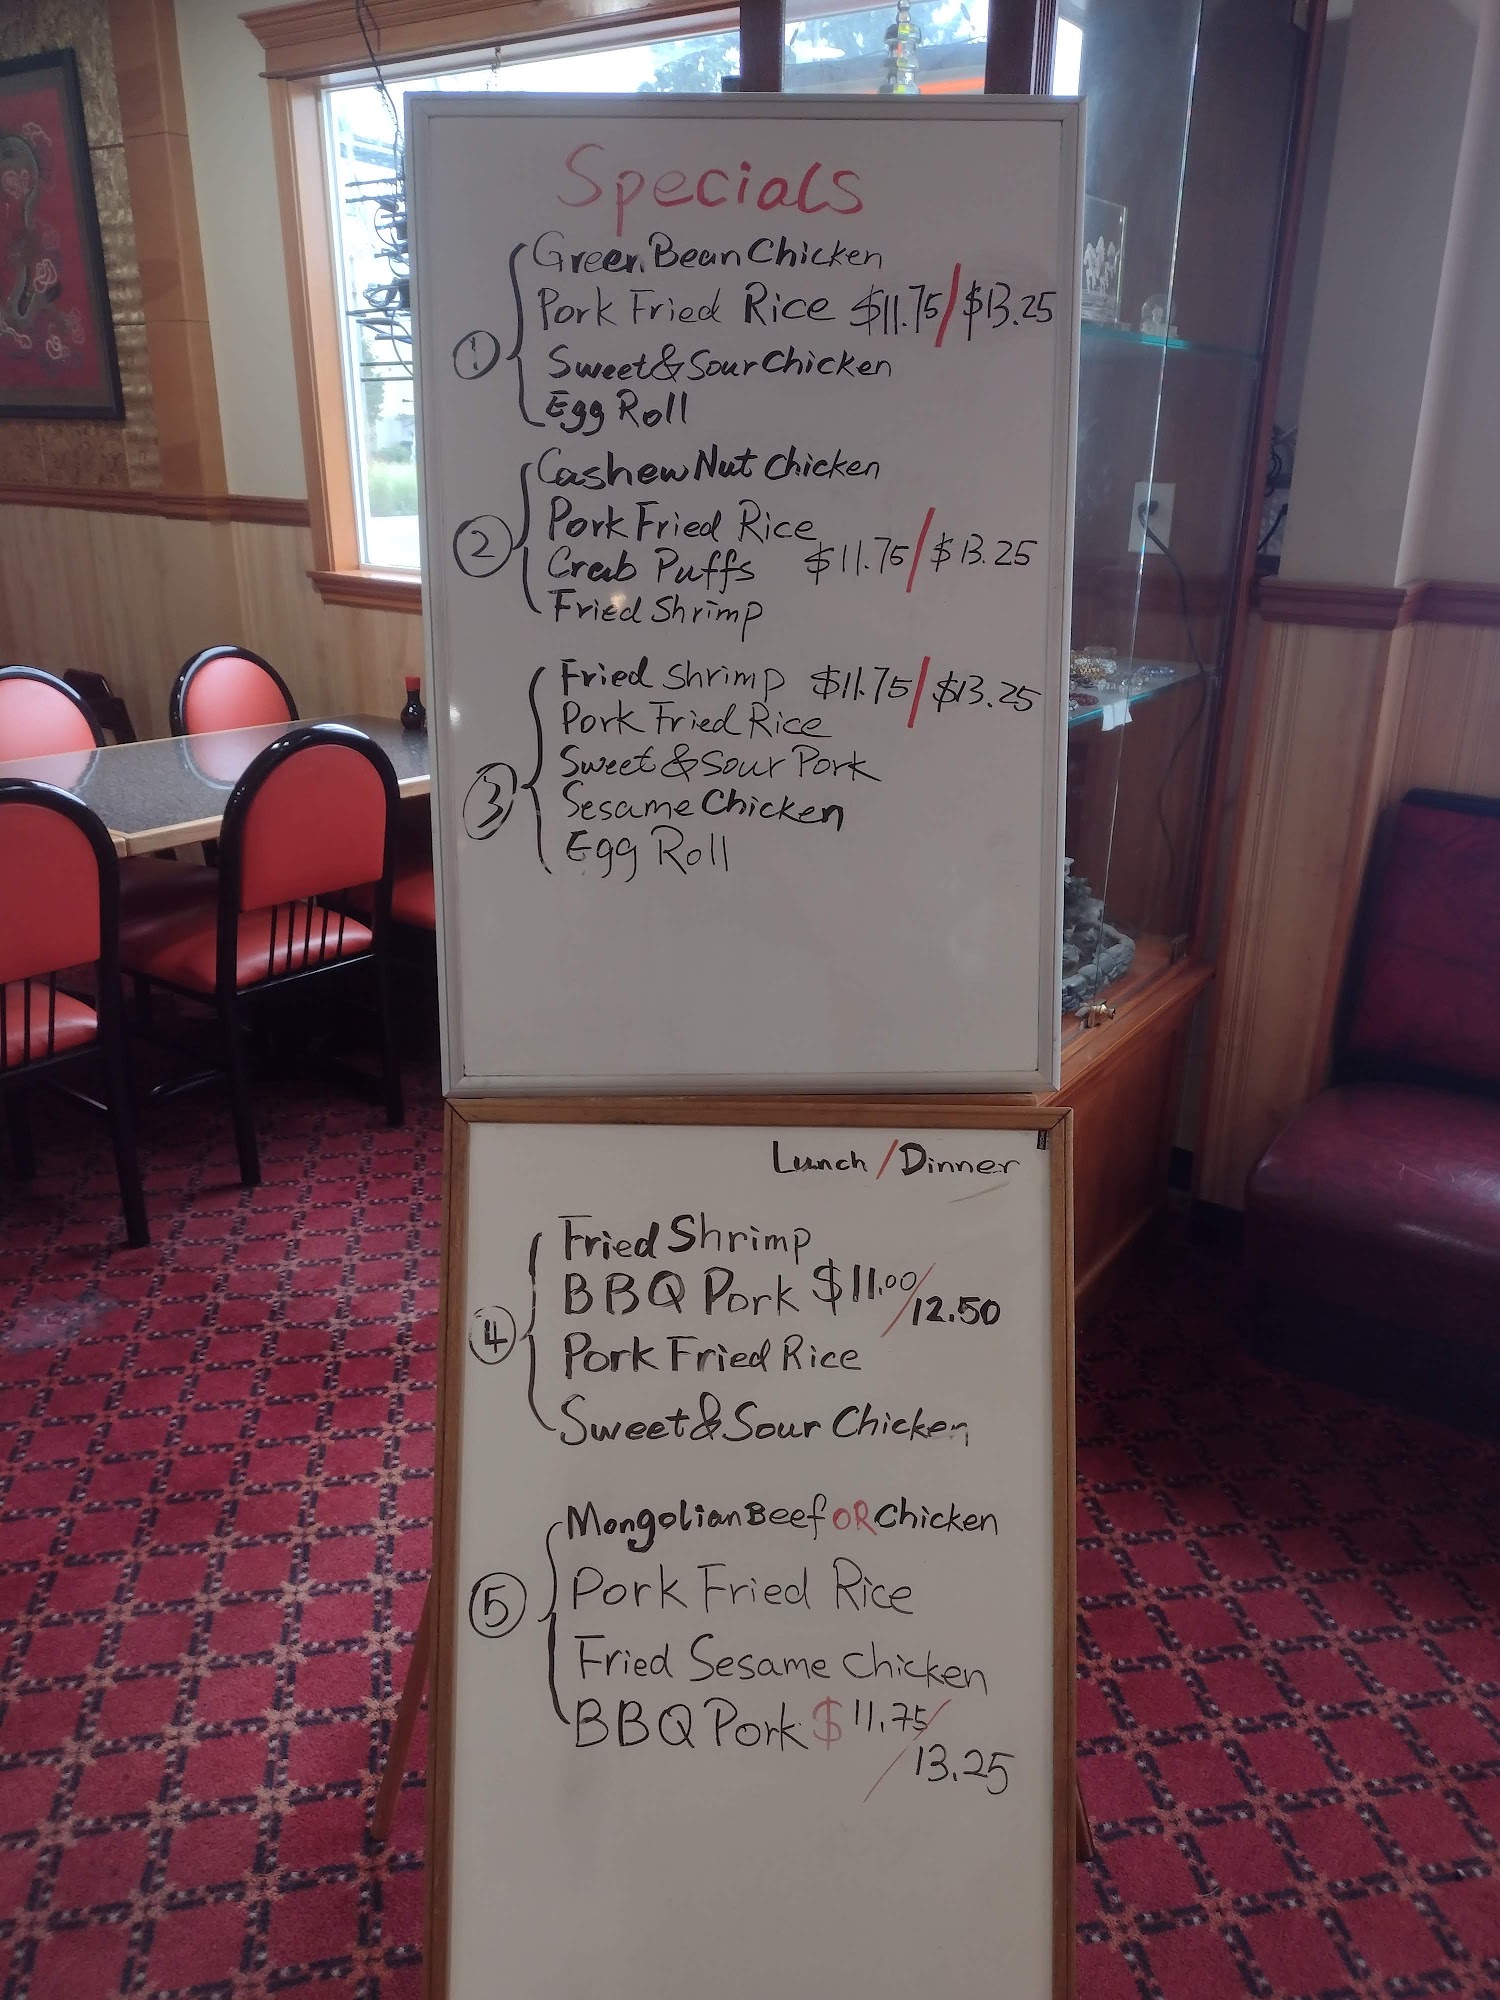 Specials
Green Bean Chicken
Pork Fried Rice $11.75/$13.25
1
Sweet & Sour Chicken
Egg Roll
Cashew Nut Chicken
Pork Fried Rice
2
Crab Puffs $11.75/$13.25
Fried Shrimp
Fried Shrimp $11.75/$13.25
Pork Fried Rice
Sweet & Sour Pork
3
Sesame Chicken
Egg Roll
Lunch/Dinner
Fried Shrimp
BBQ Pork $11.00/12.50
4
Pork Fried Rice
Sweet & Sour Chicken
Mongolian Beef OR Chicken
5
Pork Fried Rice
Fried Sesame Chicken
BBQ Pork $11.75/
13.25